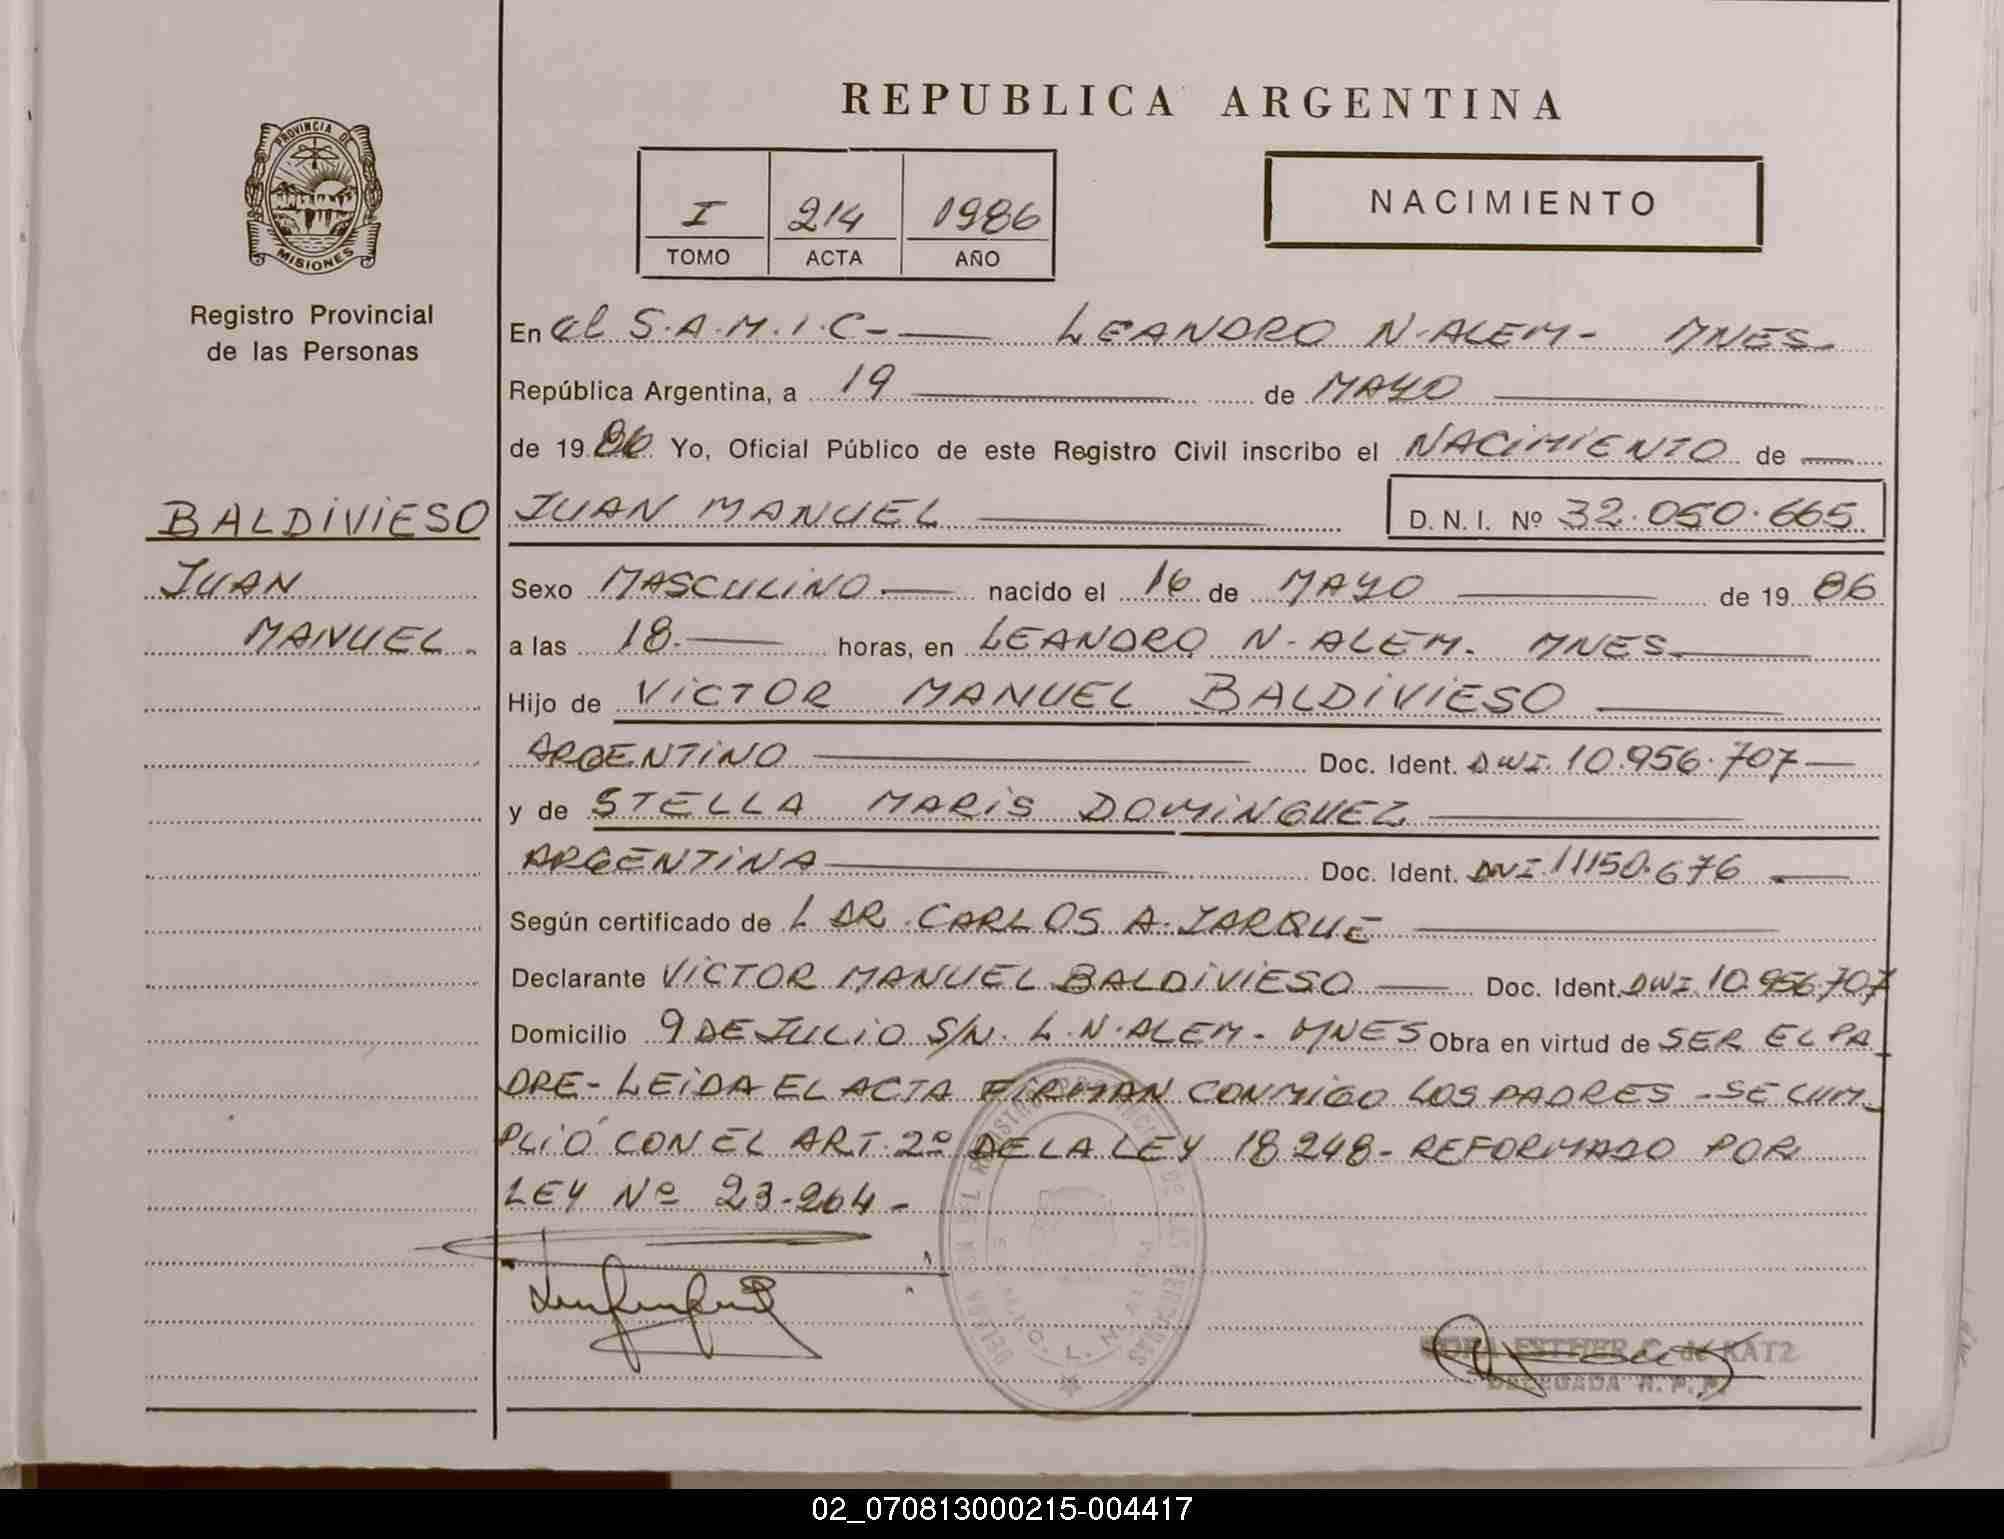 PROVINCIA DE
MISIONES
Registro Provincial
de las Personas
BALDIVIESO
JUAN
MANUEL.
REPUBLICA ARGENTINA
I 214 1986
TOMO ACTA AÑO
NACIMIENTO
En el S.A.M.I.C- LEANDRO N.ALEM- MNES.
República Argentina, a 19 de MAYO
de 1986 Yo, Oficial Público de este Registro Civil inscribo el NACIMIENTO de
JUAN MANUEL D. N. I. Nº 32.050.665
Sexo MASCULINO nacido el 16 de MAYO de 1986
a las 18. horas, en LEANDRO N-ALEM. MNES.
Hijo de VICTOR MANUEL BALDIVIESO
ARGENTINO Doc. Ident. DNI. 10.956.707
y de STELLA MARIS DOMINGUEZ
ARGENTINA Doc. Ident. DNI 11150.676
Según certificado de L DR. CARLOS A. JARQUE
Declarante VICTOR MANUEL BALDIVIESO Doc. Ident. DNI 10.956.707
Domicilio 9 DE JULIO S/N. L.N.ALEM- MNES Obra en virtud de SER EL PA
DRE- LEIDA EL ACTA FIRMAN CONMIGO LOS PADRES -SE CUM_
PLIÓ CON EL ART. 2º DE LA LEY 18248- REFORMADO POR
LEY Nº 23-264-
ESTHER C. de KATZ
DELEGADA R. P. P.
02_070813000215-004417